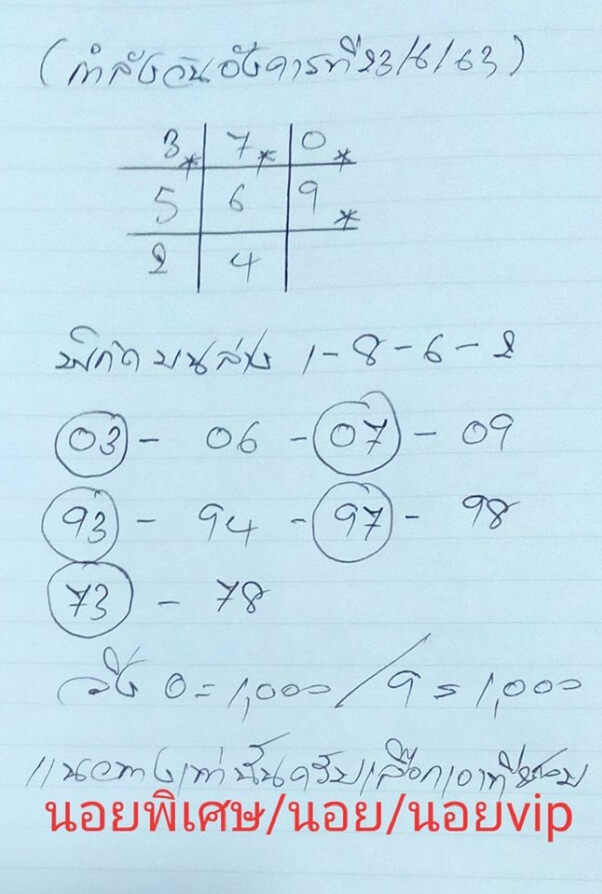 (กำลังวันอังคารที่23/6/63)
3* 7* 0*
5 6 9*
2 4
พิกัด บนล่าง 1-8-6-2
03 - 06 - 07 - 09
93 - 94 - 97 - 98
73 - 78
วิ่ง 0=1,000/9=1,000
แนวทางเท่านั้นครับเลือกเอาที่ชอบ
นอยพิเศษ/นอย/นอยvip